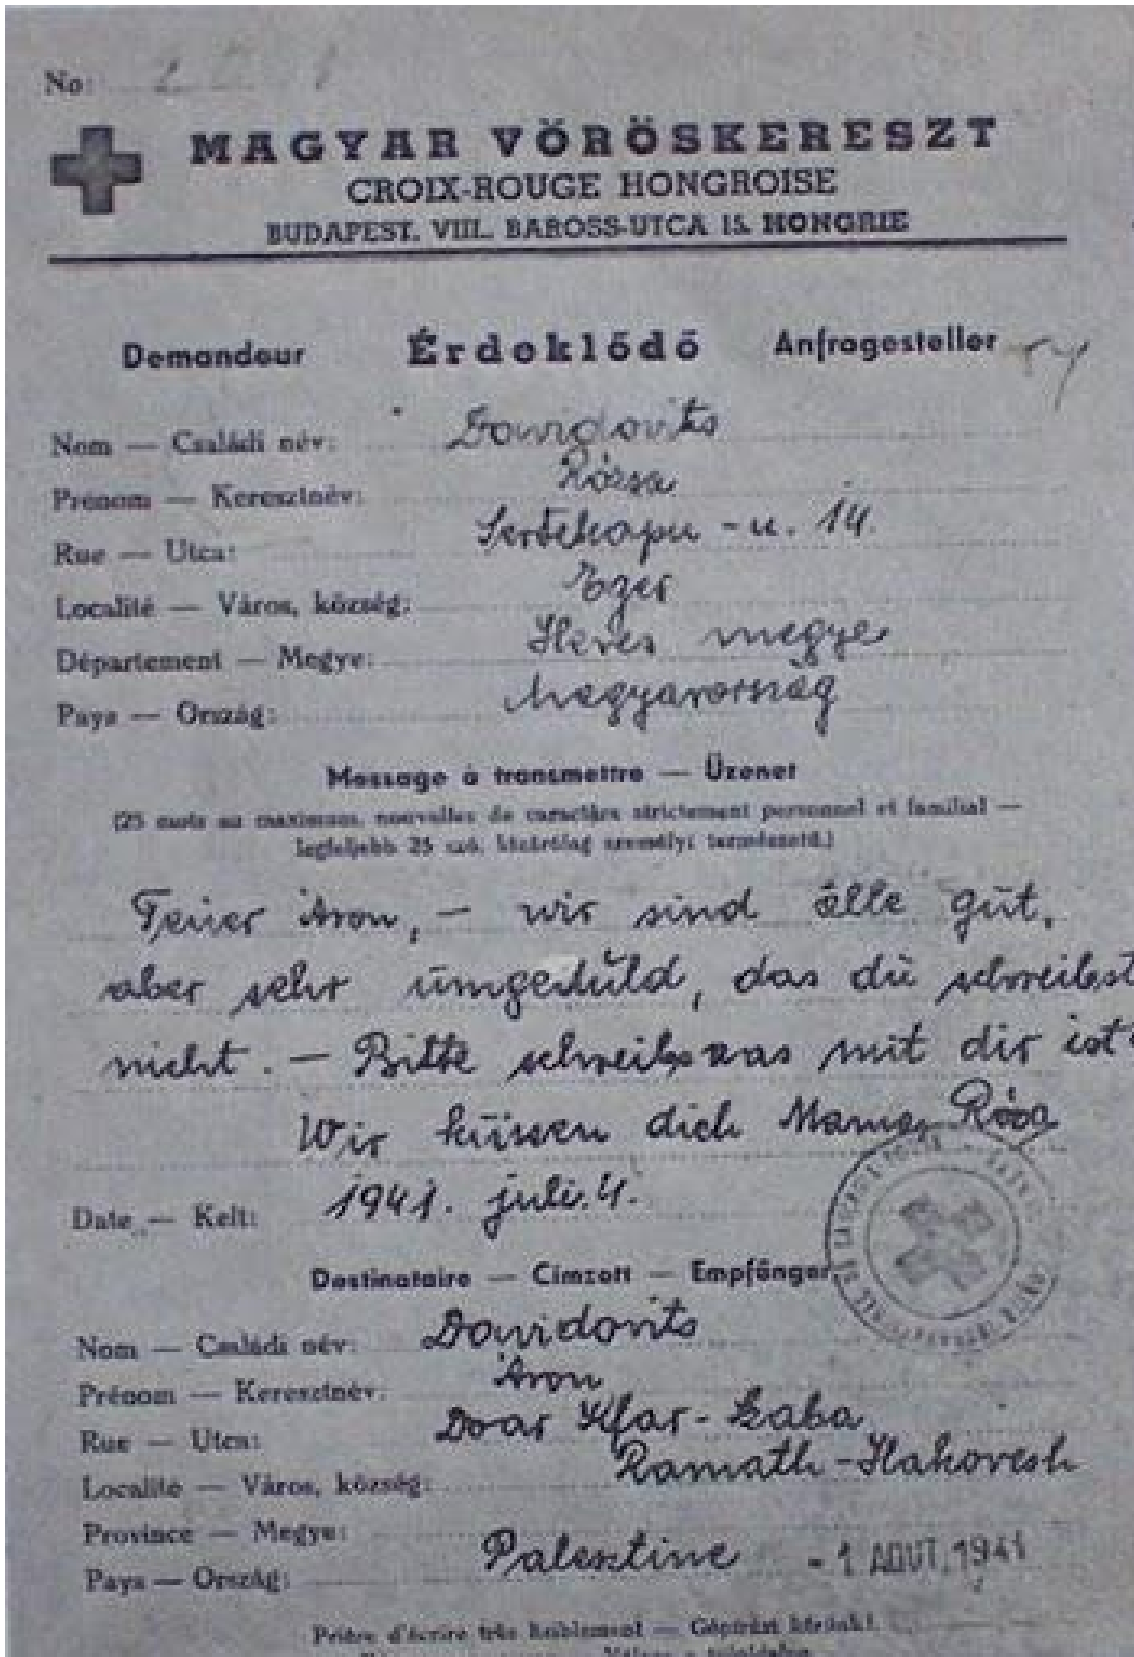 No:
MAGYAR VÖRÖSKERESZT
CROIX-ROUGE HONGROISE
BUDAPEST. VIII. BAROSS-UTCA 15. HONGRIE
Demandeur Érdeklődő Anfragesteller
Nom — Családi név: Davidovits
Prénom — Keresztnév: Rózsa
Rue — Utca: -u. 14.
Localité — Város, község: Eger
Département — Megye: Heves megye
Pays — Ország: Magyarország
Message à transmettre — Üzenet
(25 mots au maximum, nouvelles de caractère strictement personnel et familial —
legfeljebb 25 szó, kizárólag személyi természetű.)
Teuer Áron, – wir sind álle gut,
aber sehr ungeduld, das du schreibest
nicht. – Bitte schreibe was mit dir ist
Wir küssen dich Mama, Róza
Date — Kelt: 1941. juli. 4.
Destinataire — Címzett — Empfänger
Nom — Családi név: Davidovits
Prénom — Keresztnév: Áron
Rue — Utca: Doar Kfar-Szaba
Localité — Város, község: Ramath-Hakovesh
Province — Megye:
Pays — Ország: Palesztine - 1 AOUT. 1941
Prière d'écrire très lisiblement — Gépírást kérünk!